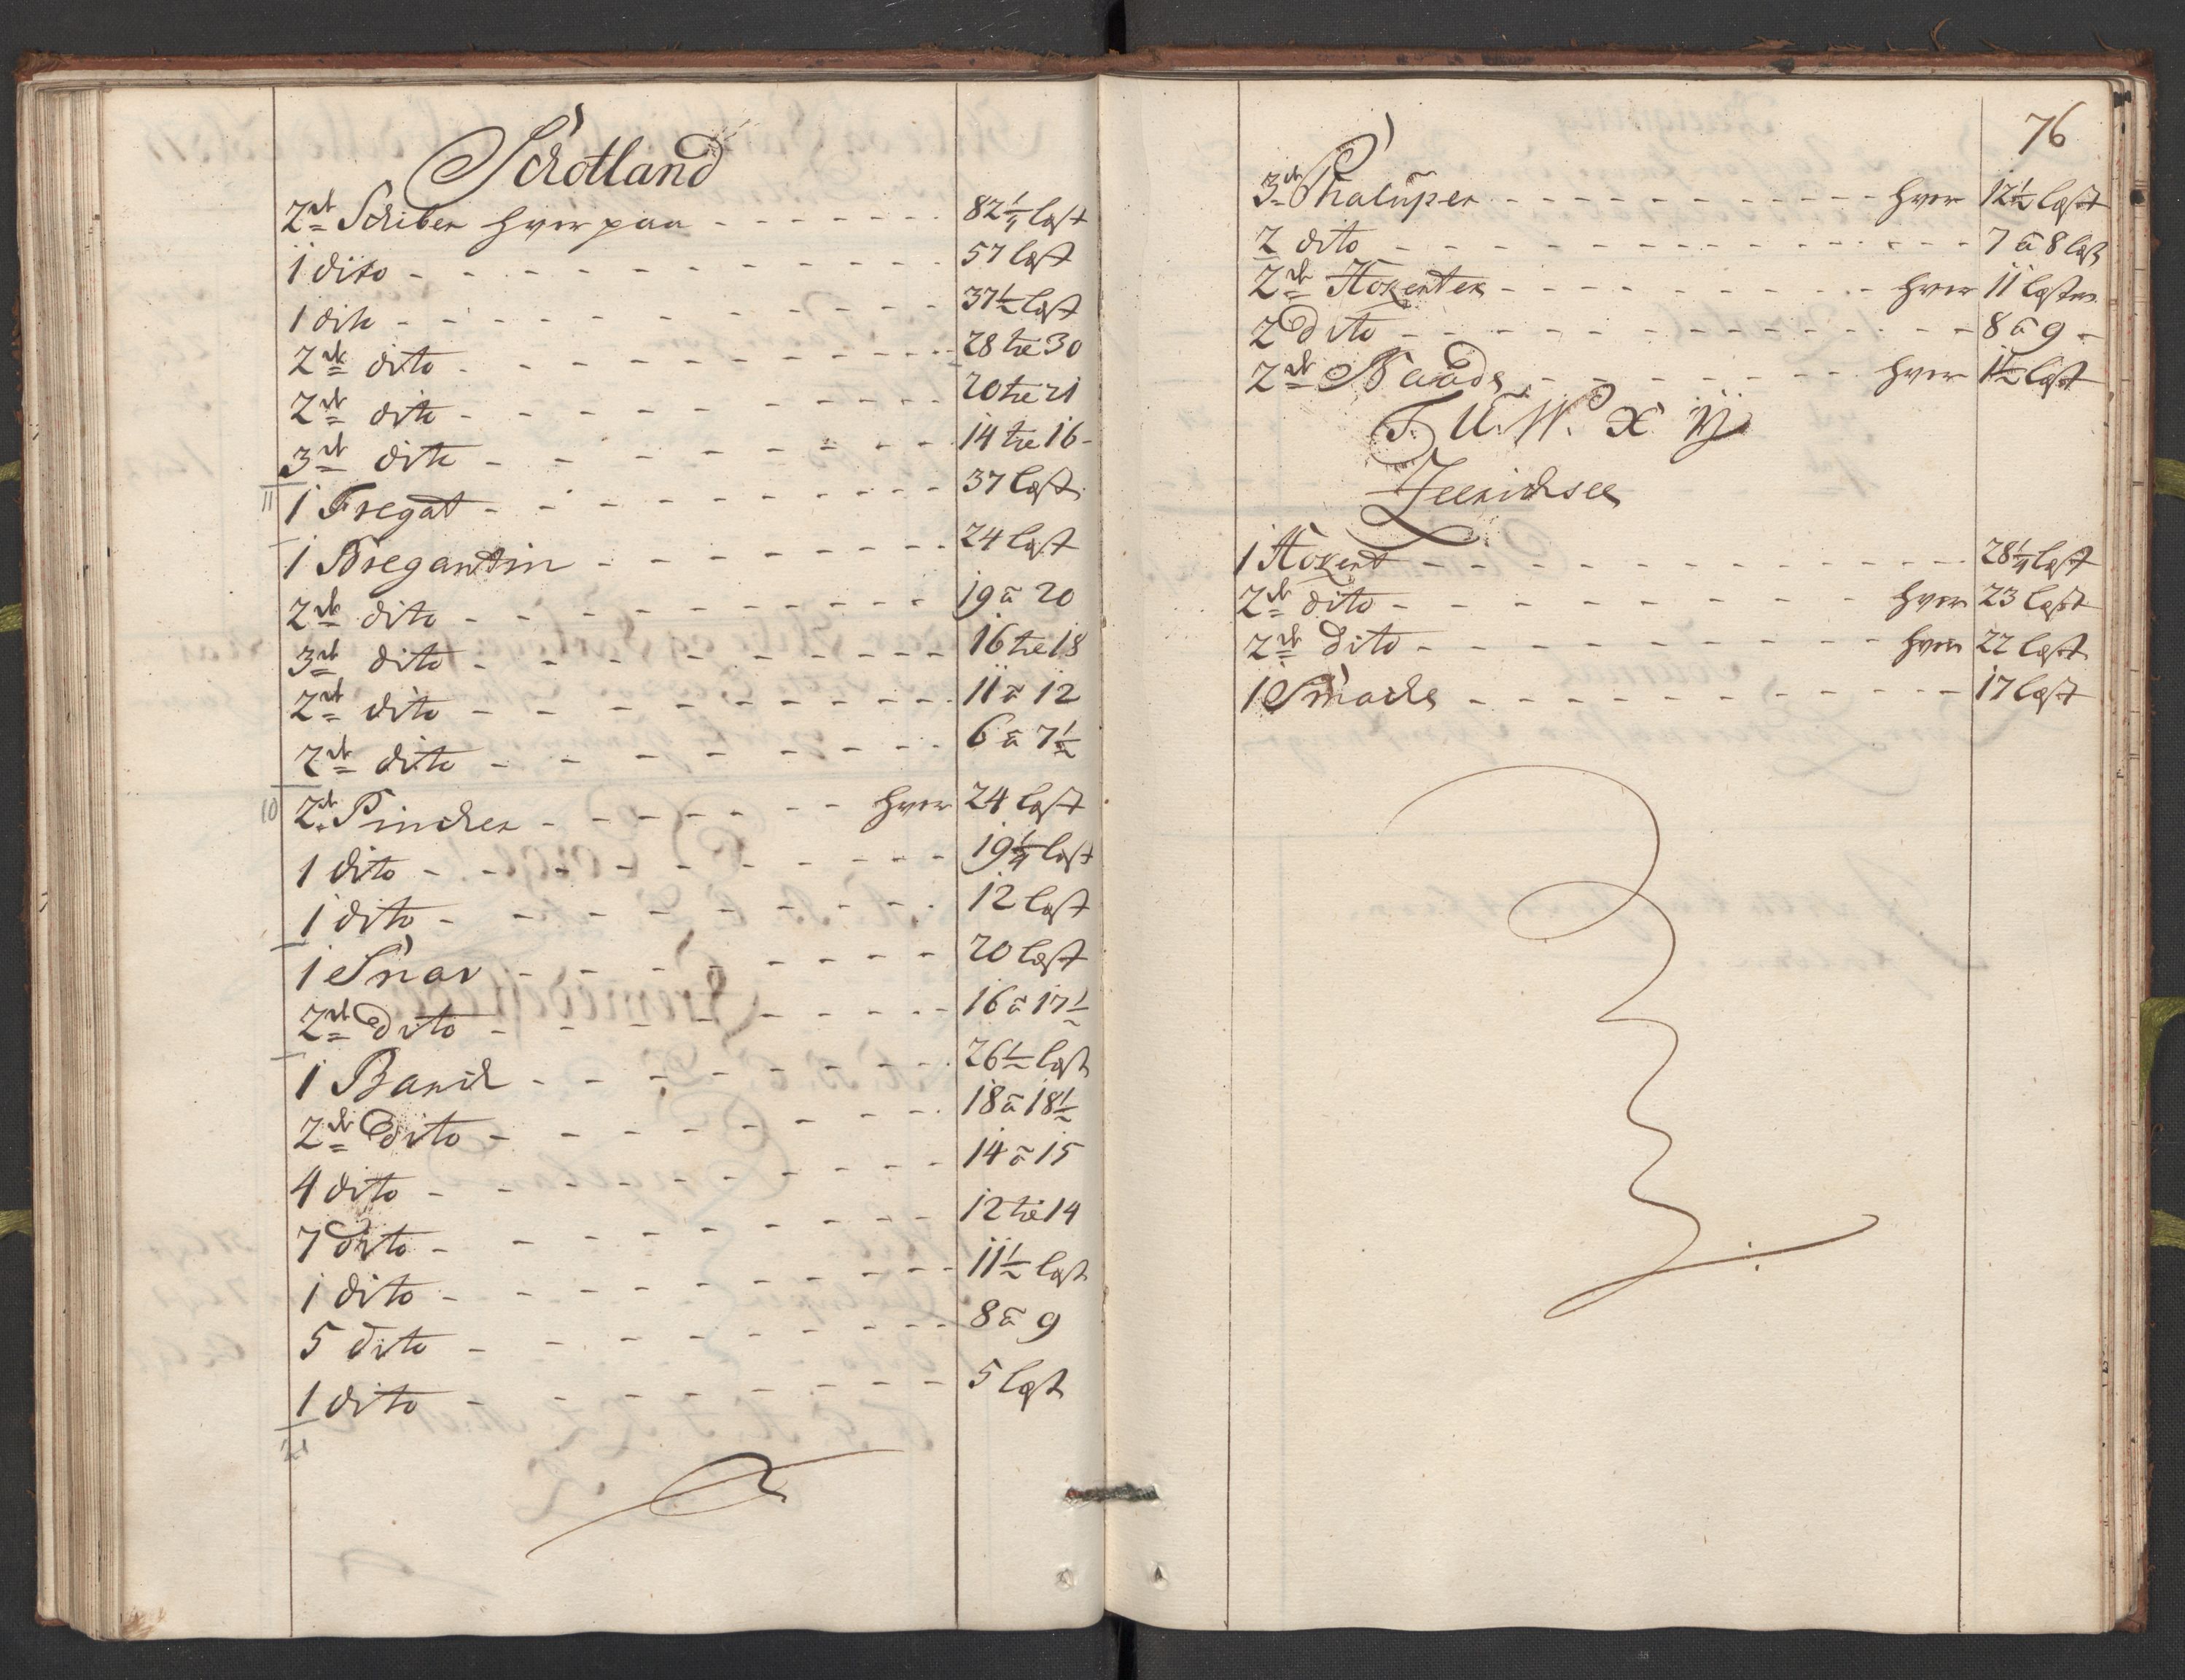 Schotland
2 st Schiber hver paa - - - - - - 82¼ læst
1 dito - - - - - - 57 læst
1 dito - - - - - - 37½ læst
2 st dito - - - - - - 28 til 30
2 st dito - - - - - - 20 til 21
3 st dito - - - - - - 14 til 16 -
11
1 Fregat - - - - - - 37 læst
1 Bregantin - - - - - - 24 læst
2 st dito - - - - - - 19 a 20
3 st dito - - - - - - 16 til 18
2 st dito - - - - - - 11 a 12
2 st dito - - - - - - 6 a 7½
10
2 st Pincker - - - - - - hver 24 læst
1 dito - - - - - - 19¼ læst
1 dito - - - - - - 12 læst
1 Snav - - - - - - 20 læst
2 st dito - - - - - - 16 a 17½
1 Barck - - - - - - 26½ læst
2 st dito - - - - - - 18 a 18½
4 dito - - - - - - 14 a 15
7 dito - - - - - - 12 til 14
1 dito - - - - - - 11½ læst
5 dito - - - - - - 8 a 9
1 dito - - - - - - 5 læst
21
76
3 st Chaluper - - - - - - hver 12½ læst
2 dito - - - - - - 7 a 8 læst
2 st Hokerter - - - - - - hver 11 læster
2 dito - - - - - - 8 a 9 -
2 st Baads - - - - - - hver 1½ læst
T. U. W. X Ÿ
Zeerichsee
1 Hokert - - - - - - 28¼ læst
2 st dito - - - - - - hver 23 læst
2 st dito - - - - - - hver 22 læst
1 Smacke - - - - - - 17 læst